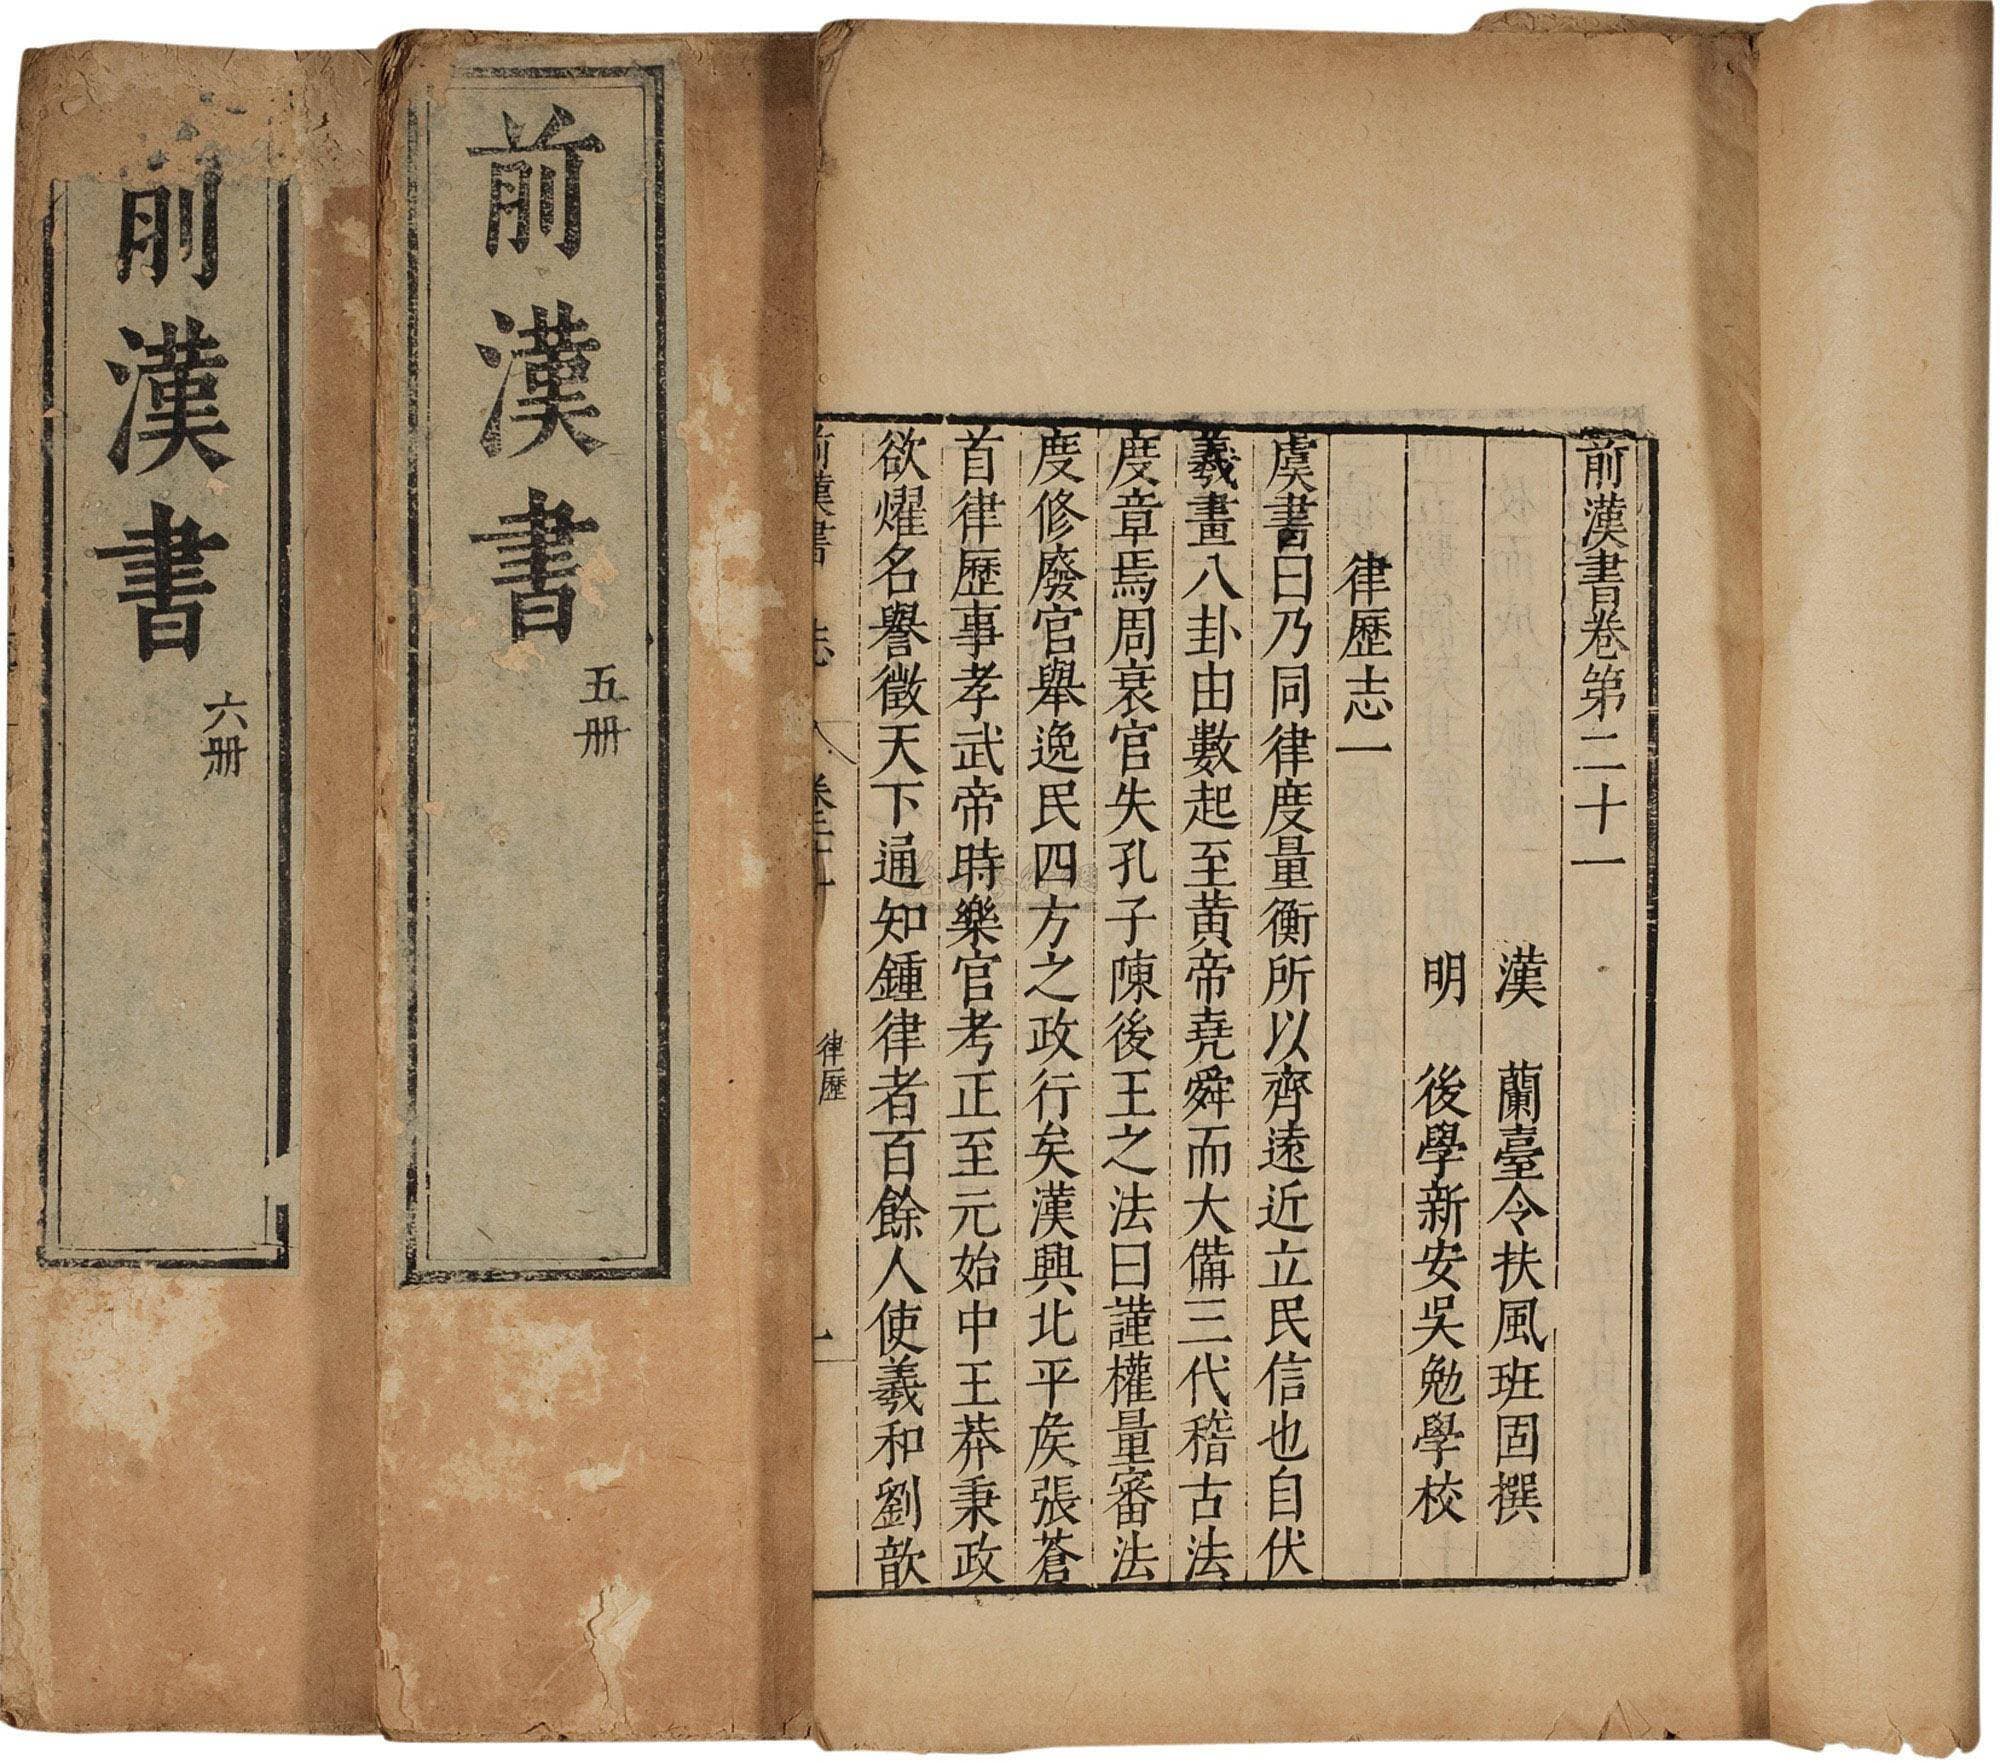 前漢書卷第二十一
漢 蘭臺令扶風班固撰
明 後學新安吳勉學校
律歷志一
虞書曰乃同律度量衡所以齊遠近立民信也自伏
羲畫八卦由數起至黃帝堯舜而大備三代稽古法
度章焉周衰官失孔子陳後王之法曰謹權量審法
度修廢官舉逸民四方之政行矣漢興北平矦張蒼
首律歷事孝武帝時樂官考正至元始中王莽秉政
欲燿名譽徵天下通知鍾律者百餘人使羲和劉歆
前漢書 志 卷二十一 律歷 一
前漢書
五册
前漢書
六册